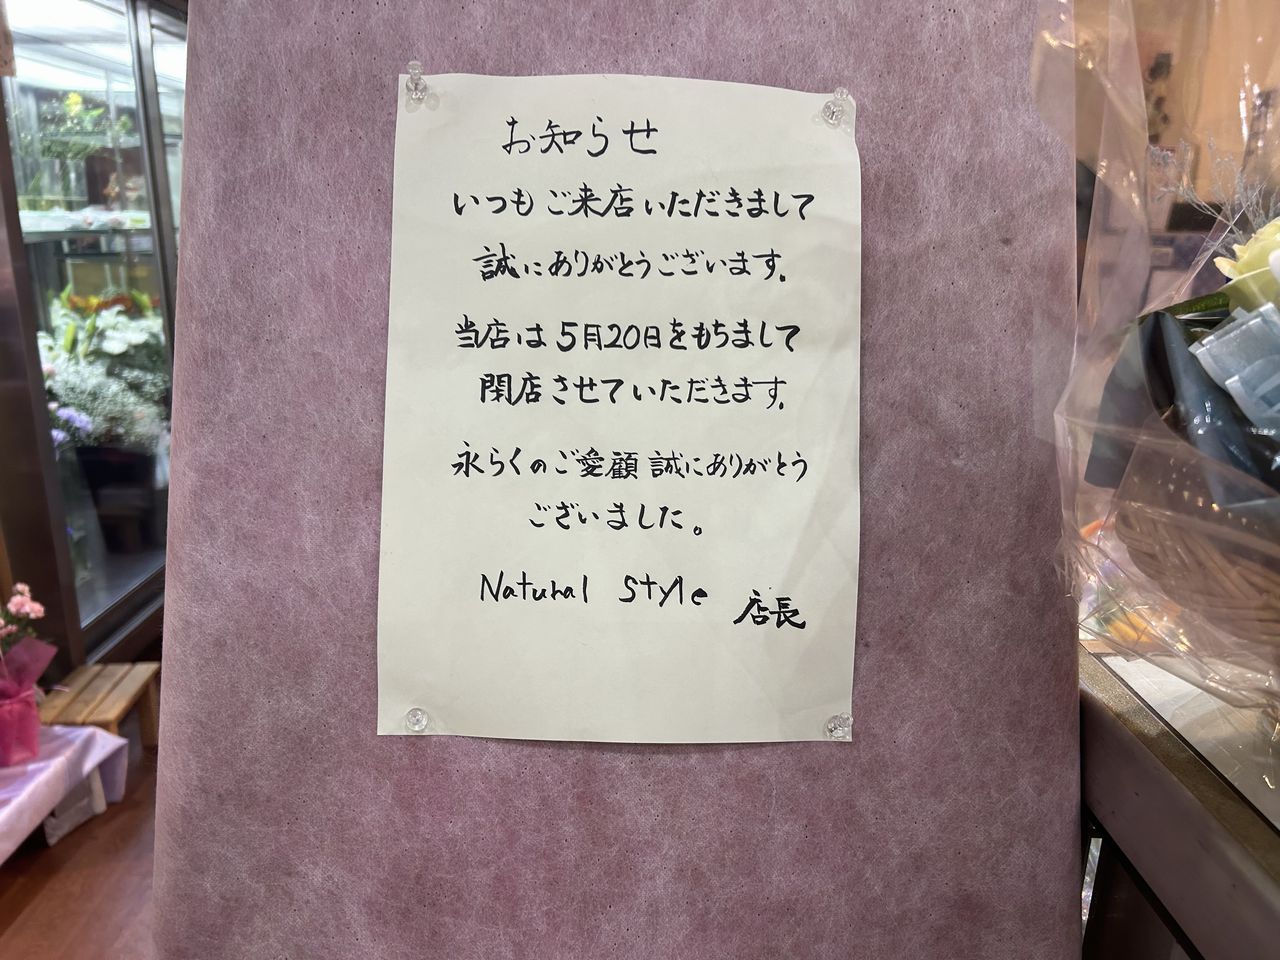 お知らせ
いつもご来店いただきまして
誠にありがとうございます.
当店は5月20日をもちまして
閉店させていただきます.
永らくのご愛顧誠にありがとう
ございました。
Natural Style 店長